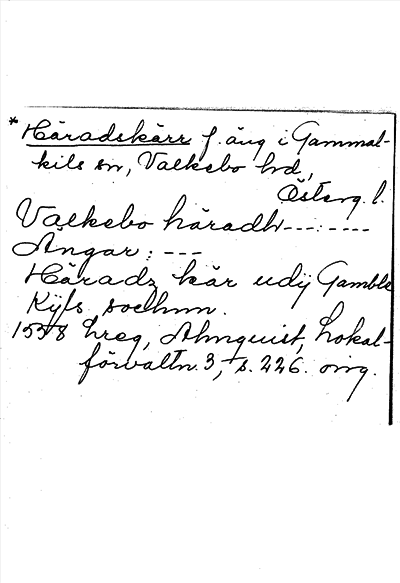 *Häradskärr f. äng i Gammal-
kils sn, Valkebo hd,
Österg. l.
Valkebo häradh ---:----
Ängar: ---
Häradz kär udij Gamble
Kijls sochnn.
1558 hreg, Almquist, Lokal-
förvaltn. 3, s. 226. orig.